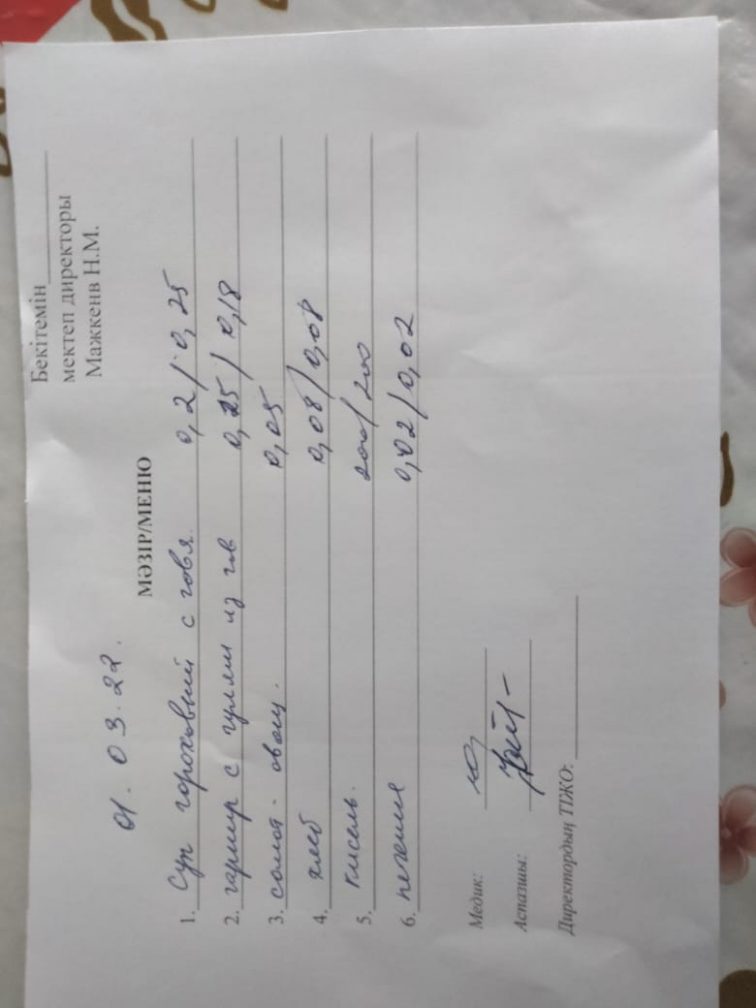 Бекітемін
мектеп директоры
Мажкенв Н.М.
01.03.22.
МӘЗІР/МЕНЮ
1. Суп гороховый с говя. 0,2/0,25
2. гарнир с гуляш из гов 0,25/0,18
3. салат- овощ. 0,05
4. хлеб 0,08/0,08
5. кисель. 200/200
6. печенье 0,02/0,02
Медик:
Аспазшы:
Директордың ТІЖО: